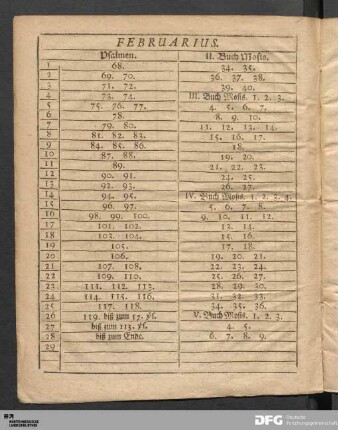 FEBRUARIUS.
Psalmen. II. Buch Mosis.
1 68. 34. 35.
2 69. 70. 36. 37. 38.
3 71. 72. 39. 40.
4 73. 74. III. Buch Mosis. 1. 2. 3.
5 75. 76. 77. 4. 5. 6. 7.
6 78. 8. 9. 10.
7 79. 80. 11. 12. 13. 14.
8 81. 82. 83. 15. 16. 17.
9 84. 85. 86. 18.
10 87. 88. 19. 20.
11 89. 21. 22. 23.
12 90. 91. 24. 25.
13 92. 93. 26. 27.
14 94. 95. IV. Buch Mosis. 1. 2. 3. 4.
15 96. 97. 5. 6. 7. 8.
16 98. 99. 100. 9. 10. 11. 12.
17 101. 102. 13. 14.
18 103. 104. 15. 16.
19 105. 17. 18.
20 106. 19. 20. 21.
21 107. 108. 22. 23. 24.
22 109. 110. 25. 26. 27.
23 111. 112. 113. 28. 29. 30.
24 114. 115. 116. 31. 32. 33.
25 117. 118. 34. 35. 36.
26 119. biß zum 57. ℣. V. Buch Mosis. 1. 2. 3.
27 biß zum 113. ℣. 4. 5.
28 biß zum Ende. 6. 7. 8. 9.
29
DFG Deutsche
Forschungsgemeinschaft